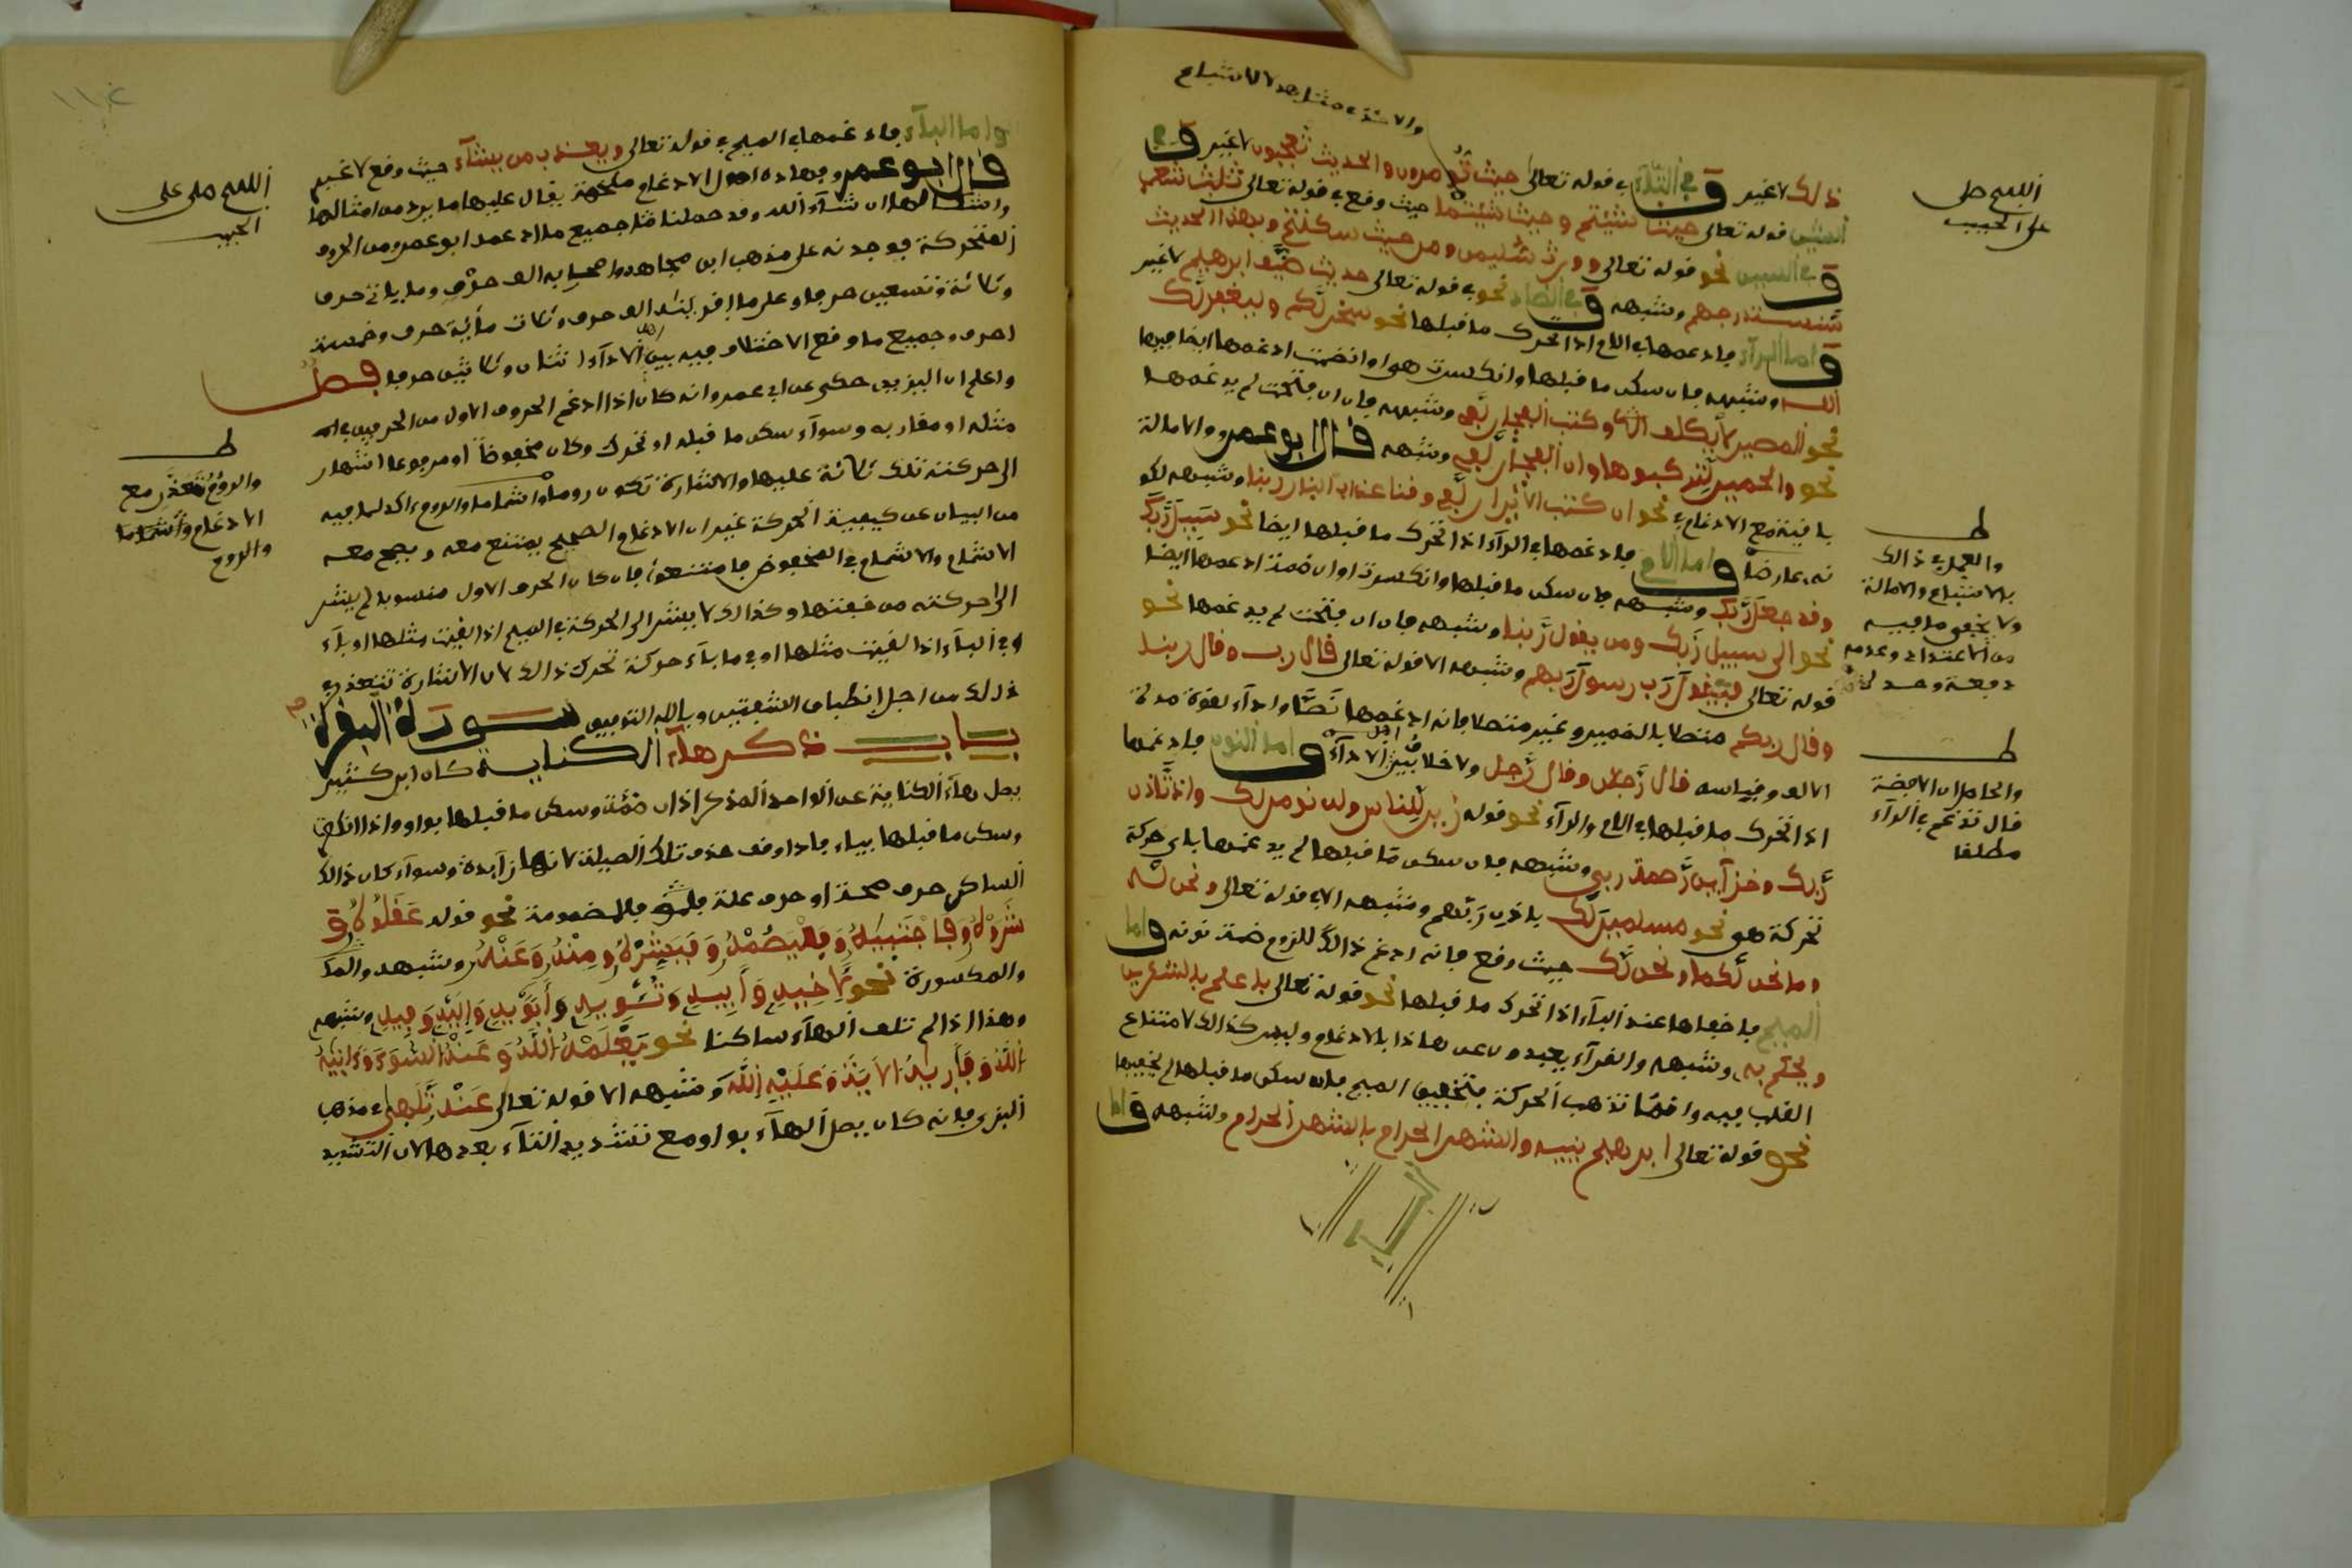 ذلك لا غير وفي الثاء في قوله تعالى حيث تومرون والحديث تعجبون لا غير وفي
الشين قوله تعالى حيث شئتم وحيث شئتما حيث وقع في قوله تعالى ثلث شعب
وفي السين نحو قوله تعالى وورث سليمن ومن حيث سكنتم وبهذا الحديث
سنستدرجهم وشبهه وفي الضاد نحو في قوله تعالى حديث ضيف ابرهيم لا غير
واما الراء فادغمها في اللام اذا تحرك ما قبلها نحو سخر لكم وليغفر لك
الله وشبهه فان سكن ما قبلها وانكسرت هي او انضمت ادغمها ايضا فيهما
نحو المصير لا يكلف الله وكتب الفجار لفي وشبهه فان انفتحت لم يدغمها
نحو والحمير لتركبوها وان الفجار لفي وشبهه قال ابو عمرو والامالة
باقية مع الادغام في نحو ان كتب الابرار لفي وقنا عذاب النار ربنا وشبهه لكو
نه عارضا واما اللام فادغمها في الراء اذا تحرك ما قبلها ايضا نحو سبيل ربك
وقد جعل ربك وشبهه فان سكن ما قبلها وانكسرت او انضمت ادغمها ايضا
نحو الى سبيل ربك ومن يقول ربنا وشبهه فان انفتحت لم يدغمها نحو
قوله تعالى فيقول رب رسول ربهم وشبهه الا قوله تعالى قال رب وقال ربنا
وقال ربكم متصلا بالضمير وغير متصل فانه ادغمها نصا واداء لقوة مدة
الالف وقياسه قال رجلان وقال رجل ولا خلاف بين اهل الاداء واما النون فادغمها
اذا تحرك ما قبلها في اللام والراء نحو قوله زين للناس ولن نومن لك واذ تاذن
ربك وخزاين رحمة ربي وشبهه فان سكن ما قبلها لم يدغمها باي حركة
تحركت هي نحو مسلمين لك باذن ربهم وشبهه الا في قوله تعالى ونحن له
وما نحن لكما ونحن لك حيث وقع فانه ادغم ذالك للزوم ضمة نونه واما
الميم فاخفاها عند الباء اذا تحرك ما قبلها نحو قوله تعالى باعلم بالشكرين
ويحكم به وشبهه والقراء يعبرون عن هاذا بالادغام وليس كذالك لامتناع
القلب فيه وانما تذهب الحركة فتخفى الميم فان سكن ما قبلها لم يخفيها
نحو قوله تعالى ابرهيم بنيه والشهر الحرام بالشهر الحرام وشبهه واما
اللهم صل
على الحبيب
ط
والعمل في ذالك
بالاشباع والامالة
ط
والحاصل ان
قال تدغم في الراء
مطلقا
واما الباء فادغمها في الميم في قوله تعالى ويعذب من يشاء حيث وقع لا غير
قال ابو عمرو فهاذه اصول الادغام ملخصة يقاس عليها ما يرد من امثالها
واشكالها ان شاء الله وقد حصلنا جميع ما ادغمه ابو عمرو من الحروف
المتحركة فوجدنه على مذهب ابن مجاهد واصحابه الف حرف وما يتي حرف
وثلاثة وتسعين حرفا وعلى ما اقرينه الف حرف وثلاث مائة حرف وخمسة
احرف وجميع ما وقع الاختلاف فيه بين اهل الاداء اثنان وثلاثين حرفا فصل
واعلم ان اليزيدي حكى عن ابي عمرو انه كان اذا ادغم الحرف الاول من الحرفين في
مثله او مقاربه وسواء سكن ما قبله او تحرك وكان مخفوضا او مرفوعا اشار
الى حركته تلك دلالة عليها والاشارة تكون روما واشماما والروم اكد لما فيه
من البيان عن كيفية الحركة غير ان الادغام الصحيح يمتنع معه ويصح معه
الاشمام والاشمام في المخفوض ممتنع فان كان الحرف الاول منصوبا لم يشر
الى حركته من خفتها وكذالك لا يشر الى الحركة في الميم اذا لقيت مثلها او باء
وفي الباء اذا لقيت مثلها او ميما باي حركة تحرك ذالك لان الاشارة تتعذر في
ذلك من اجل انطباق الشفتين وبالله التوفيق سورة البقرة
باب ذكر هاء الكناية كان ابن كثير
يصل هاء الكناية عن الواحد المذكر اذا انضمت وسكن ما قبلها بواو واذا انكسرت
وسكن ما قبلها بياء فاذا وقف حذف تلك الصلة لانها زايدة وسواء كان ذالك
الساكن حرف صحة او حرف علة فالمضمومة نحو قوله عقلوه و
شروه وفاجتبيه وفليصمه وفبشره ومنه وعنه وشبهه و
والمكسورة نحو لاخيه وابيه وتسويه وابويه واليه وفيه وشبهه
وهذا اذا لم تلق الهاء ساكنا نحو يعلمه الله وعنه السوء واتيه
الله وفاريه الاية وعليه الله وشبهه الا قوله تعالى عنه تلهى في مذهب
البزي فانه كان يصل الهاء بواو مع تشديد التاء بعدها لان التشديد
اللهم صل على
الحبيب
ط
والروم يتعذر مع
الادغام واشماما
والروم